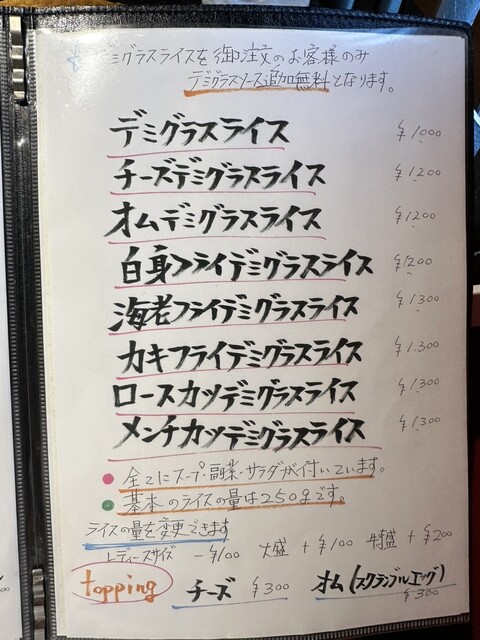 デミグラスライスを御注文のお客様のみ
デミグラスソース追加無料となります。
デミグラスライス ¥1000
チーズデミグラスライス ¥1.200
オムデミグラスライス ¥1200
白身フライデミグラスライス ¥1200
海老フライデミグラスライス ¥1.300
カキフライデミグラスライス ¥1.300
ロースカツデミグラスライス ¥1300
メンチカツデミグラスライス ¥1,300
全てにスープ・副菜・サラダが付いています。
基本のライスの量は250gです。
ライスの量を変更できます
レディースサイズ -¥100 大盛 +¥100 特盛 +¥200
topping チーズ ¥300 オム(スクランブルエッグ) ¥300